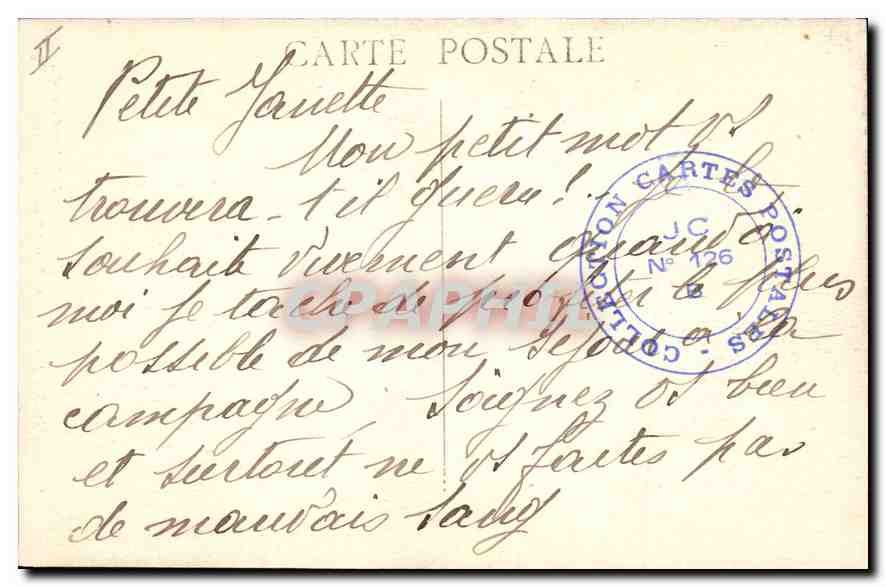 II
CARTE POSTALE
Petite Janette
Mon petit mot vs
trouvera-t-il guerie! Je le
souhaite vivement quand à
moi je tache de profiter le plus
possible de mon séjour à la
campagne. Soignez vs bien
et surtout ne vs faites pas
de mauvais sang
COLLECTION CARTES POSTALES -
JC
N° 126
B
CPAPHIL